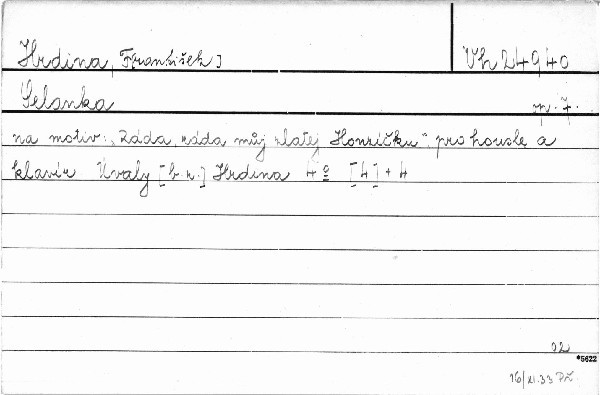 Hrdina, F[rantišek] Vh 24940
Selanka op. 7.
na motiv: „Ráda, ráda můj zlatej Honzíčku", pro housle a
klavír Úvaly [b. r.] Hrdina 4º [4] + 4
02
*5622
16/XI.33 Př